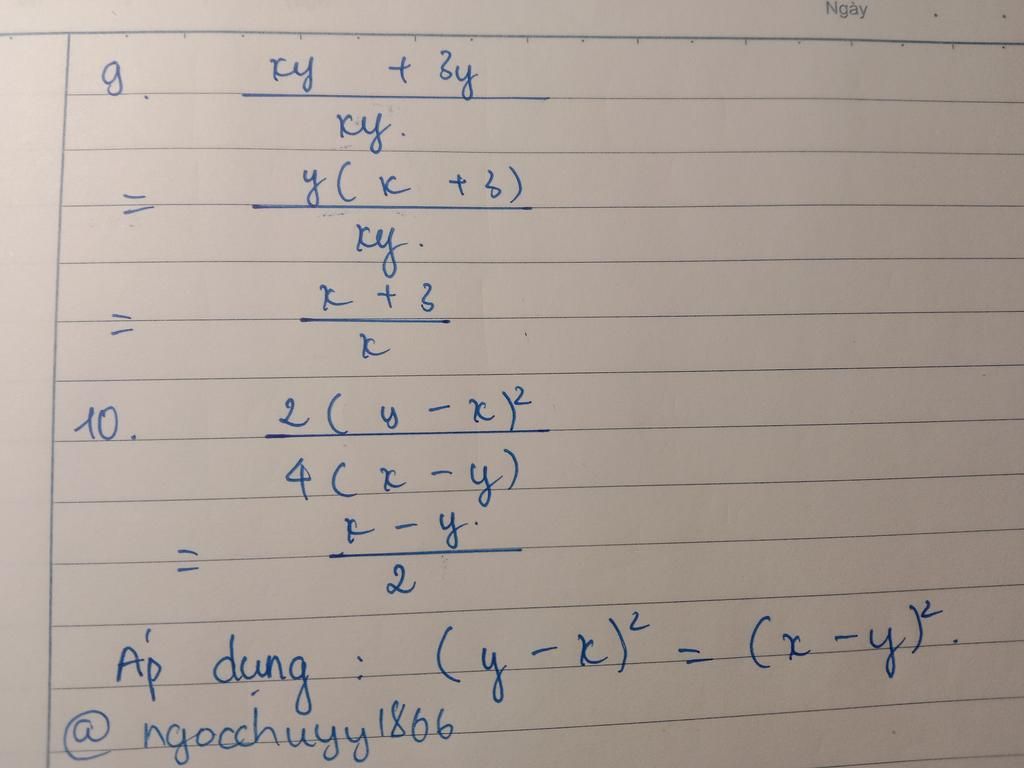 Ngày
9. xy + 3y
xy.
= y( x + 3)
xy.
= x + 3
x
10. 2 ( y - x)²
4 ( x - y)
= x - y.
2
Áp dụng : (y - x)² = (x - y)².
@ ngocchuyy1866